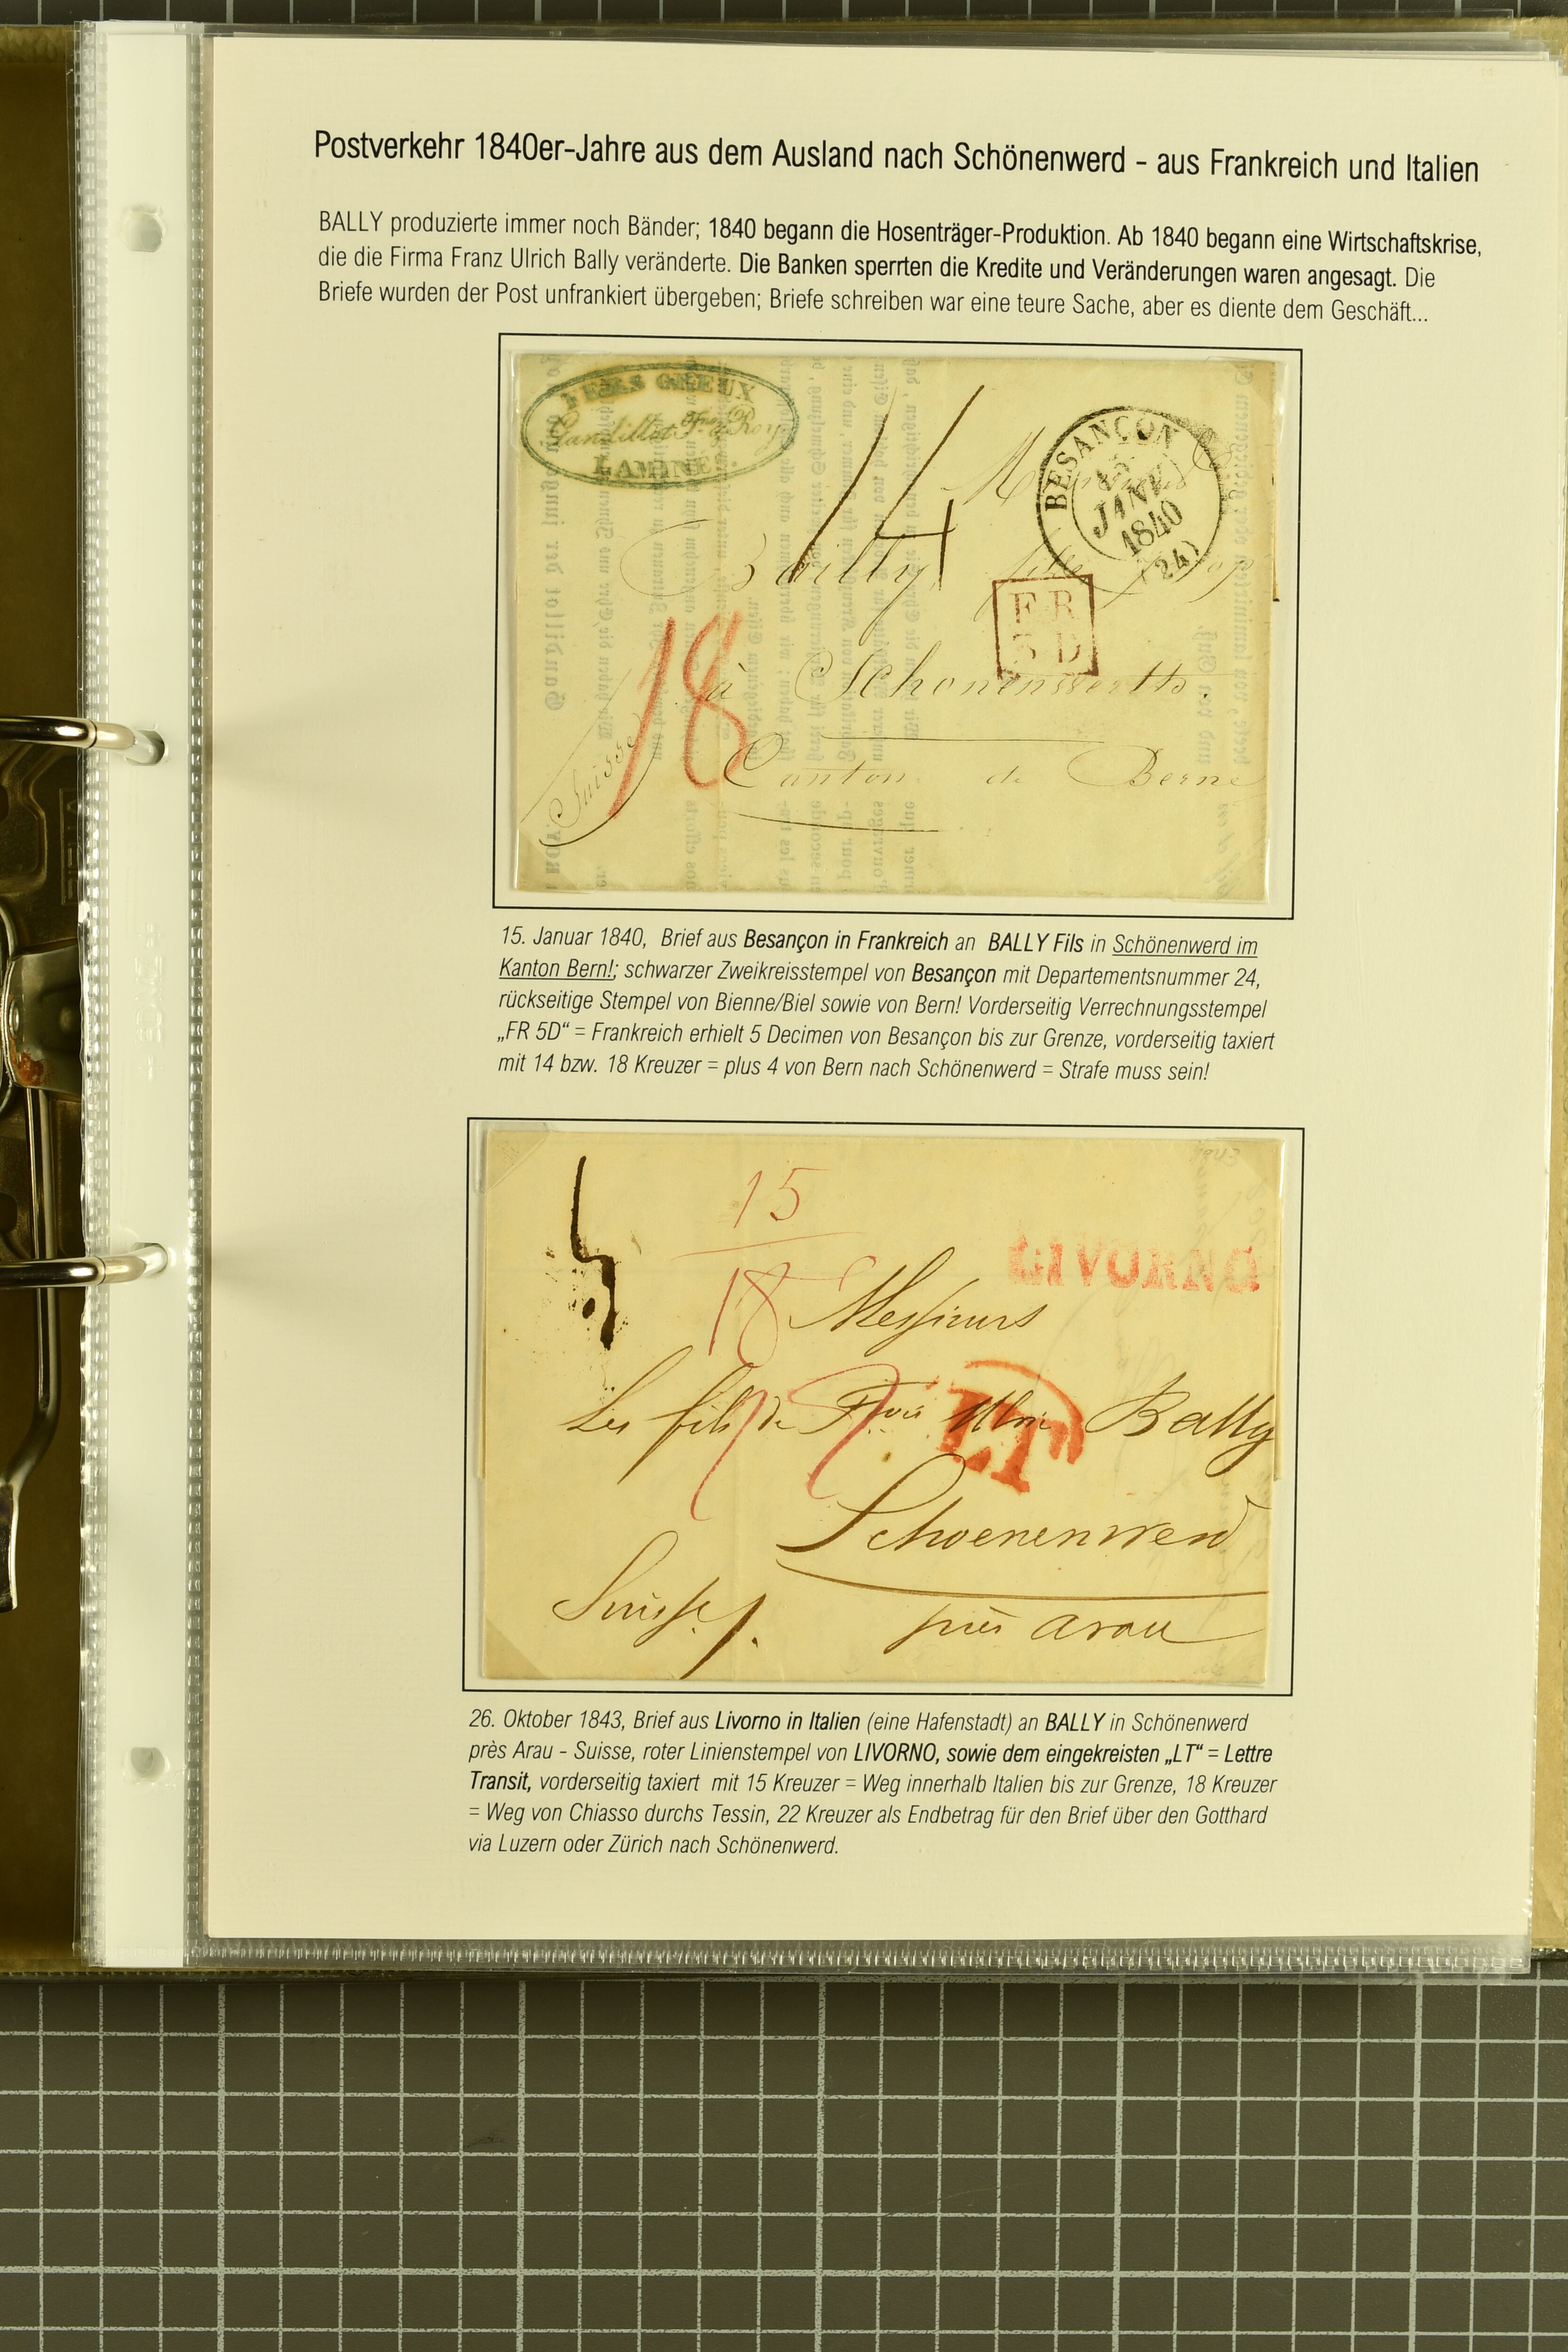 Postverkehr 1840er-Jahre aus dem Ausland nach Schönenwerd - aus Frankreich und Italien
BALLY produzierte immer noch Bänder; 1840 begann die Hosenträger-Produktion. Ab 1840 begann eine Wirtschaftskrise,
die die Firma Franz Ulrich Bally veränderte. Die Banken sperrten die Kredite und Veränderungen waren angesagt. Die
Briefe wurden der Post unfrankiert übergeben; Briefe schreiben war eine teure Sache, aber es diente dem Geschäft...
FERS CREUX
Gandillot Fres & Roy
LAMINÉ
14
BESANÇON
15
JANV.
1840
(24)
Bailly fils
FR
5 D
18
à Schonenwerth.
Suisse
Canton de Berne
15. Januar 1840, Brief aus Besançon in Frankreich an BALLY Fils in Schönenwerd im
Kanton Bern!; schwarzer Zweikreisstempel von Besançon mit Departementsnummer 24,
rückseitige Stempel von Bienne/Biel sowie von Bern! Vorderseitig Verrechnungsstempel
„FR 5D“ = Frankreich erhielt 5 Decimen von Besançon bis zur Grenze, vorderseitig taxiert
mit 14 bzw. 18 Kreuzer = plus 4 von Bern nach Schönenwerd = Strafe muss sein!
1843
15
18
LIVORNO
Messieurs
Les fils de Fçois Ulric Bally
LT
22
Schoenenwerd
Suisse
près Arau
26. Oktober 1843, Brief aus Livorno in Italien (eine Hafenstadt) an BALLY in Schönenwerd
près Arau - Suisse, roter Linienstempel von LIVORNO, sowie dem eingekreisten „LT“ = Lettre
Transit, vorderseitig taxiert mit 15 Kreuzer = Weg innerhalb Italien bis zur Grenze, 18 Kreuzer
= Weg von Chiasso durchs Tessin, 22 Kreuzer als Endbetrag für den Brief über den Gotthard
via Luzern oder Zürich nach Schönenwerd.